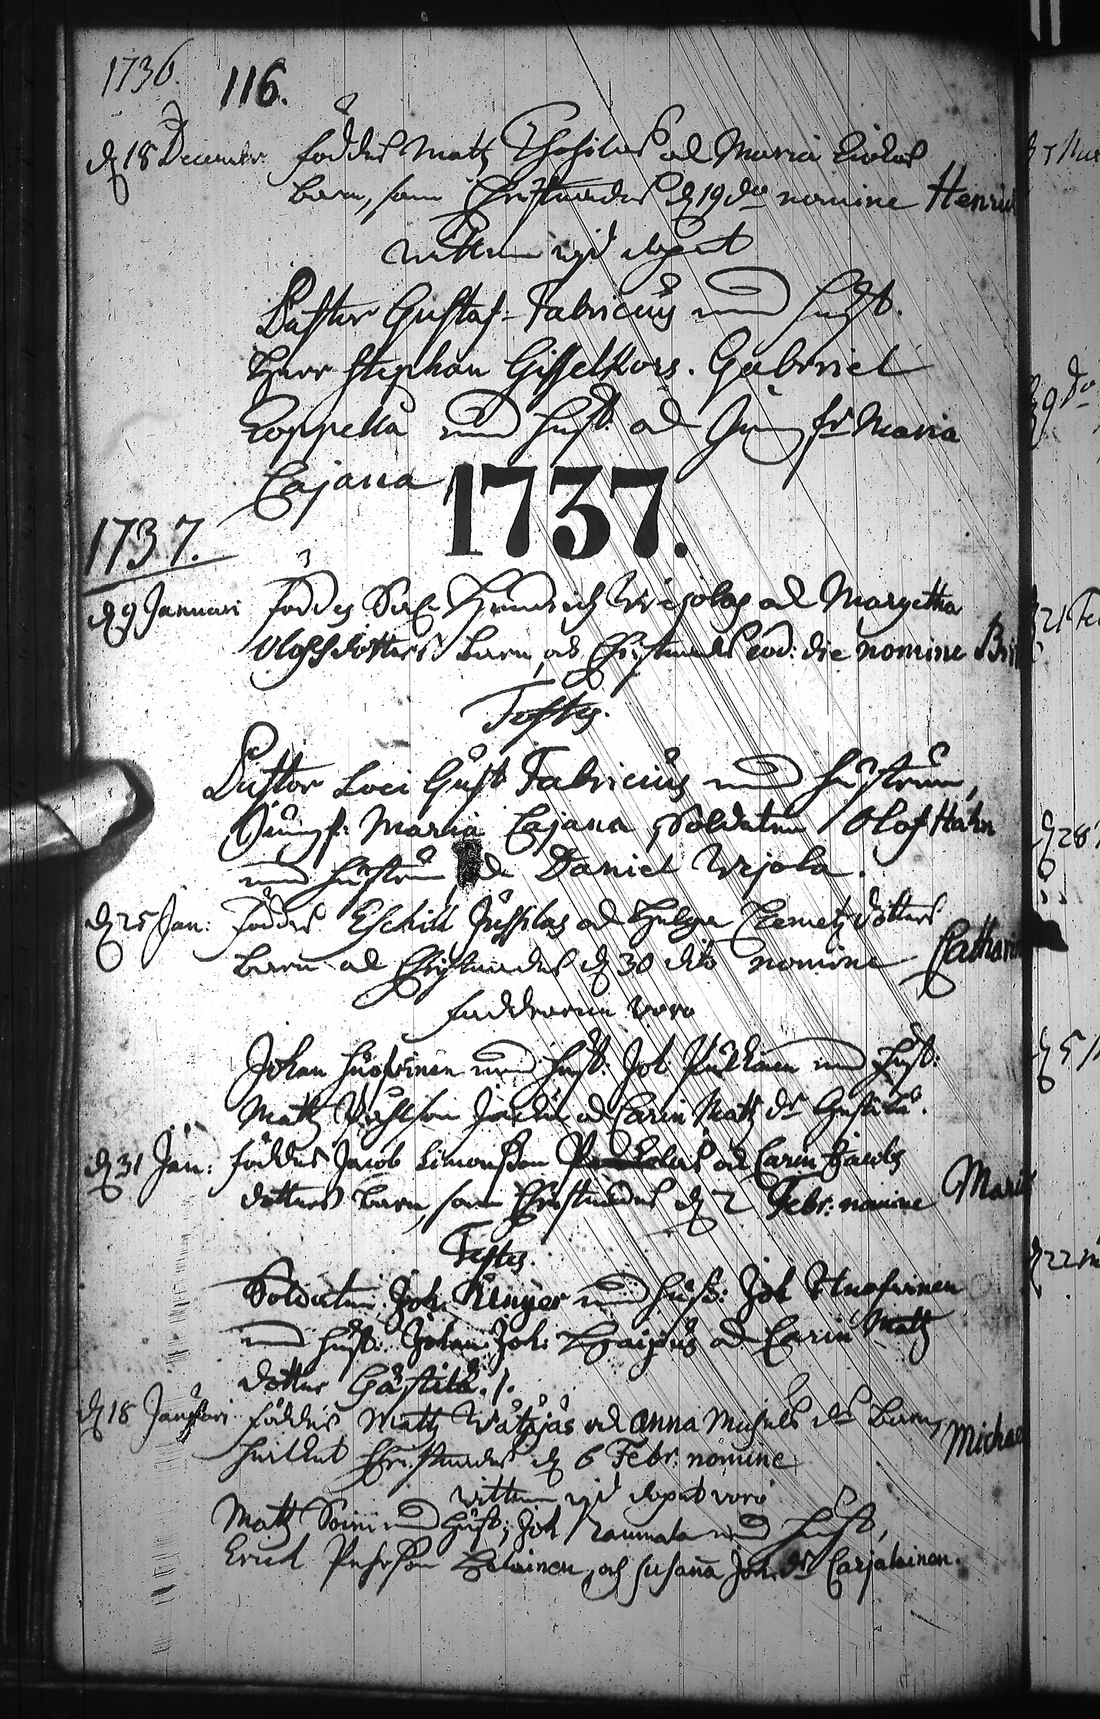 1736. 116.
d 18 Decembr: föddes Matz ad Maria
barn, som Christnades d 19 do nomine Henric
wittnen wid dopet
Pastor Gustaf Fabricius med hust.
Herr Stephan Gisselkors. Gabriel
Toppelia med hust. od Jungfr Maria
Cajana
1737.
1737.
d 9 Januari föddes Hendrich Wrjolas od Margetha
Olofsdotters barn, od Christnades eod: die nomine Bri
Testes.
Pastor Loci Gust Fabricius med hustrun,
Jungf: Maria Cajana, Soldaten Olof Hähn
med hustru Daniel Wrjola.
d 25 Jan: föddes Eschill Jussilas od Helga Clemetz dotters
barn od Christnades d 30 dito nomine Catharin
faddrarne voro
Johan Huofvinen med hust: Joh Pukkinen med hust:
Matz od Carin Matz dr Gästilä.
d 31 Jan: föddes Jacob Simonsson od Carin Jacobs
dotters barn, som Christnades d 2 Febr: nomine Mari
Testes.
Soldaten Joh. med hust: Joh Huofvinen
med hust: Johan Joh. od Carin Matz
dotter Gästilä. /.
d 18 Januari föddes Matz Wätäjäs od Anna Michels dr barn,
hwilket Christnades d 6 Febr: nomine Michae
wittnen wid dopet voro
Matz Soini med hust; Joh Raumala med hust,
Erich Pehrsson och Susana Joh. dr Carjalainen.